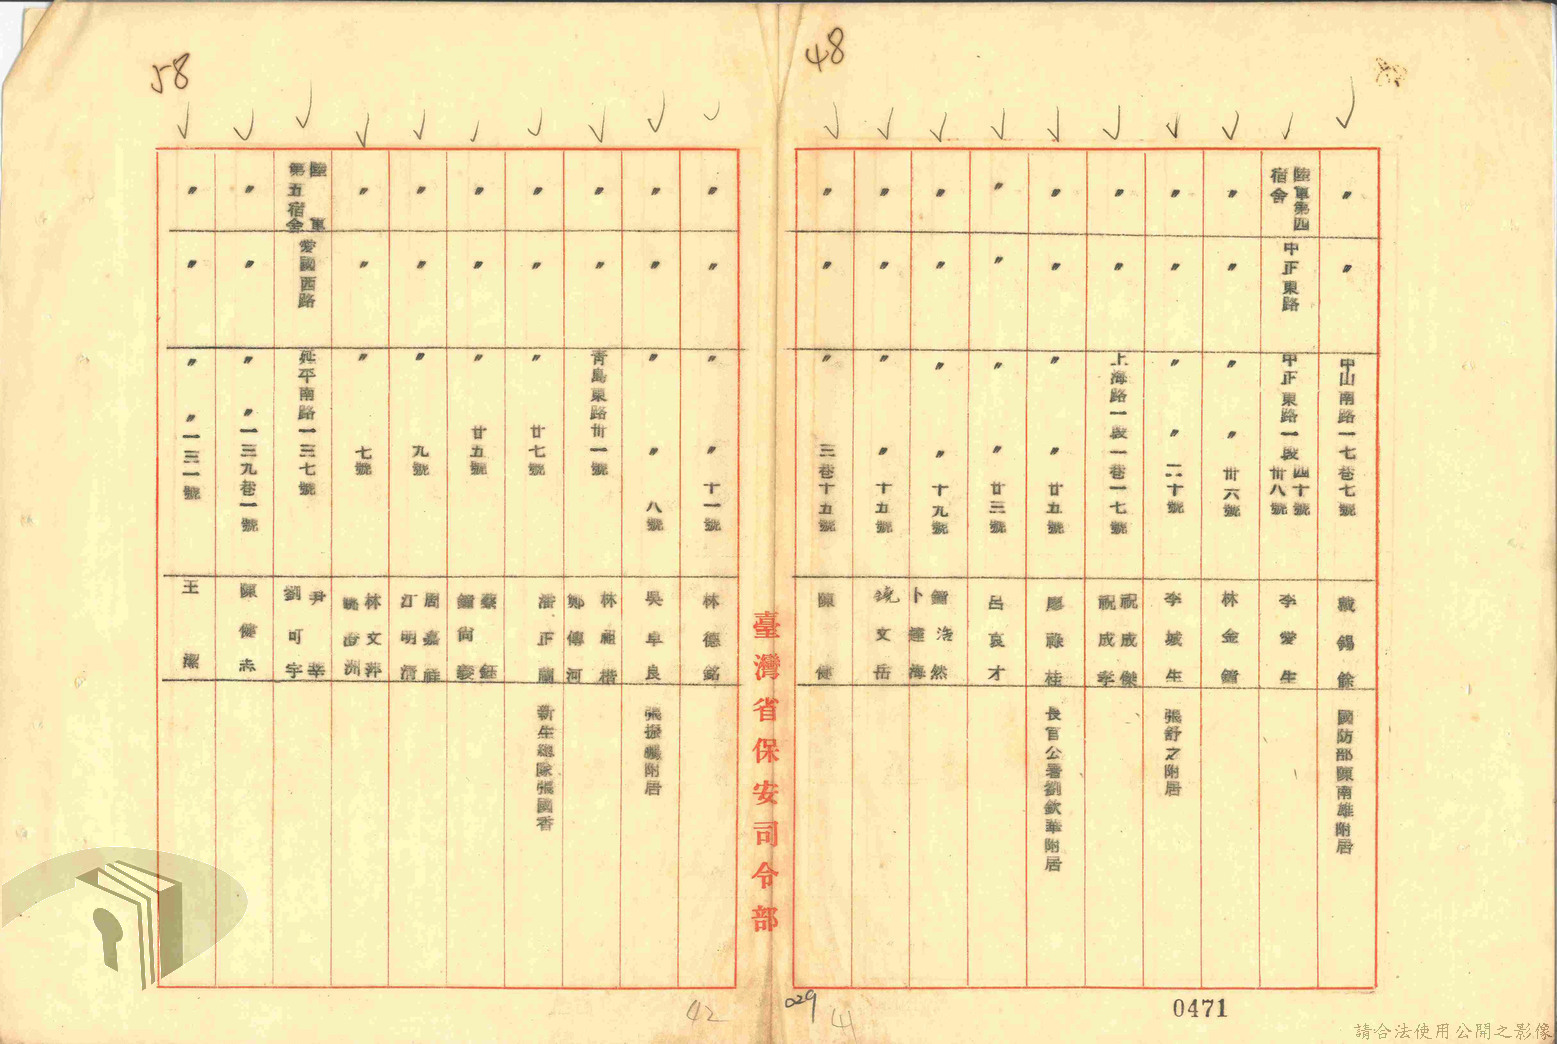 58
48
〃
〃
中山南路一七巷七號
戴錫餘
國防部陳南雄附居
陸軍第四宿舍
中正東路
中正東路一段四十號卅八號
李愛生
〃
〃
〃 〃 卅六號
林金鐘
〃
〃
〃 〃 二十號
李城生
張舒之附居
〃
〃
上海路一段一巷一七號
祝成傑
祝成孝
〃
〃
〃 〃 廿五號
廖祿桂
長官公署劉欽華附居
〃
〃
〃 〃 廿三號
呂哀才
〃
〃
〃 〃 十九號
鍾浩然
卜鍾海
〃
〃
〃 〃 十五號
饒文岳
〃
〃
〃 三巷十五號
陳健
臺灣省保安司令部
〃
〃
〃 〃 十一號
林德銘
〃
〃
〃 〃 八號
吳阜良
張振颺附居
〃
〃
青島東路卅一號
林祖楷
鄭傳河
〃
〃
〃 廿七號
潘正蘭
新生總隊張國香
〃
〃
〃 廿五號
蔡鈺
鍾尚菱
〃
〃
〃 九號
周嘉祥
汪明清
〃
〃
〃 七號
林文萍
姚澄洲
陸軍第五宿舍
愛國西路
延平南路一三七號
尹莘
劉可宇
〃
〃
〃 〃 一三九巷一號
陳健志
〃
〃
〃 〃 一三一號
王潔
42
029
41
0471
請合法使用公開之影像